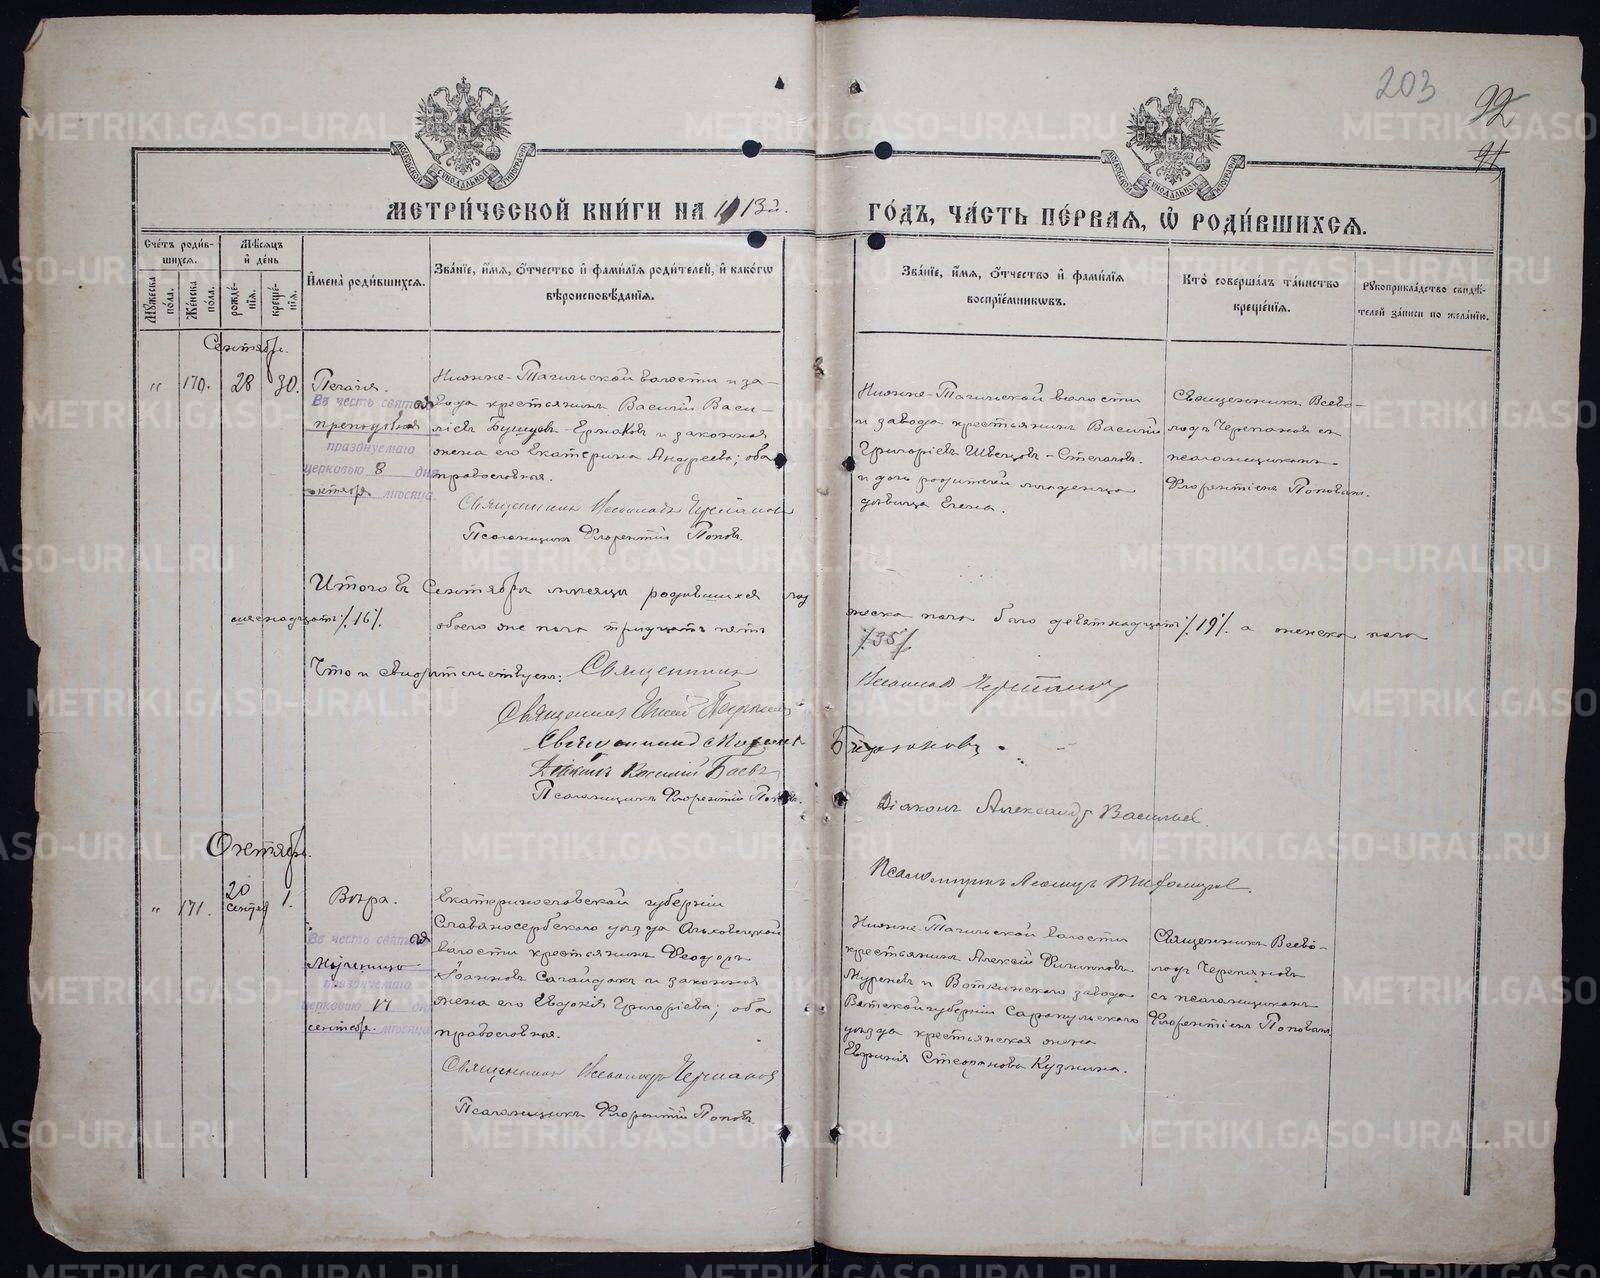 203
92
91
МОСКОВСКОЙ СѴНОДАЛЬНОЙ ТИПОГРАФІИ
МОСКОВСКОЙ СѴНОДАЛЬНОЙ ТИПОГРАФІИ
МЕТРИ́ЧЕСКОЙ КНИ́ГИ НА 1913й.
ГО́ДЪ, ЧА́СТЬ ПЕ́РВАЯ, Ѡ РОДИ́ВШИХСЯ.
Сче́тъ роди́в-
шихся.
Му́жеска по́ла.
Же́нска по́ла.
Мѣ́сяцъ
и де́нь
рожде́-
нія.
креще́-
нія.
Имена̀ роди́вшихся.
Зва́ніе, и́мя, о́тчество и фами́лія роди́телей, и како́гѡ
вѣроисповѣ́данія.
Зва́ніе, и́мя, о́тчество и фами́лія
воспріе́мниковъ.
Кто̀ соверша́лъ та́инство
креще́нія.
Рукоприкла́дство свидѣ́-
телей за́писи по жела́нію.
Сентябрь.
" 170. 28 30. Пелагія.
Въ честь святой
преподобная
празднуемаго
церковью 8 дня
октября мѣсяца.
Нижне-Тагильской волости и за-
вода крестьянинъ Василій Васи-
ліевъ Бушуевъ-Ермаковъ и законная
жена его Екатерина Андреева; оба
православныя.
Священникъ Всеволодъ Черепановъ
Псаломщикъ Флорентій Поповъ.
Нижне-Тагильской волости
и завода крестьянинъ Василій
Григоріевъ Швецовъ-Степановъ.
и дочь родителей младенца
дѣвица Елена.
Священникъ Всево-
лодъ Черепановъ съ
псаломщикомъ
Флорентіемъ Поповымъ.
Итого въ Сентябрѣ мѣсяцѣ родившихся муж
жеска пола было девятнадцать /.19/. а женска пола
шестнадцать /.16/. обоего же пола тридцать пять
/.35/.
Что и свидѣтельствуемъ: Священникъ
Всеволодъ Черепановъ
Священникъ
Священникъ
Бирюковъ.
Діаконъ Василій Баевъ
Псаломщикъ Флорентій Поповъ.
Діаконъ Александръ Васильевъ.
Псаломщикъ Леонидъ Тихомировъ.
Октябрь.
" 171. 20 сентяб 1. Вѣра.
Въ честь святой
Мученицы
празднуемаго
церковью 17 дня
сентябр. мѣсяца
Екатеринославской губерніи
Славяносербскаго уѣзда Ольховецкой
волости крестьянинъ Феодоръ
Іоанновъ Сагайдакъ и законная
жена его Евдокія Григоріева; оба
православныя.
Священникъ Всеволодъ Черепановъ
Псаломщикъ Флорентій Поповъ.
Нижне-Тагильской волости
крестьянинъ Алексѣй Филипповъ
и Воткинскаго завода
Вятской губерніи Сарапульскаго
уѣзда крестьянская жена
Степановна Кузмина.
Священникъ Всево-
лодъ Черепановъ
съ псаломщикомъ
Флорентіемъ Поповымъ
METRIKI.GASO-URAL.RU